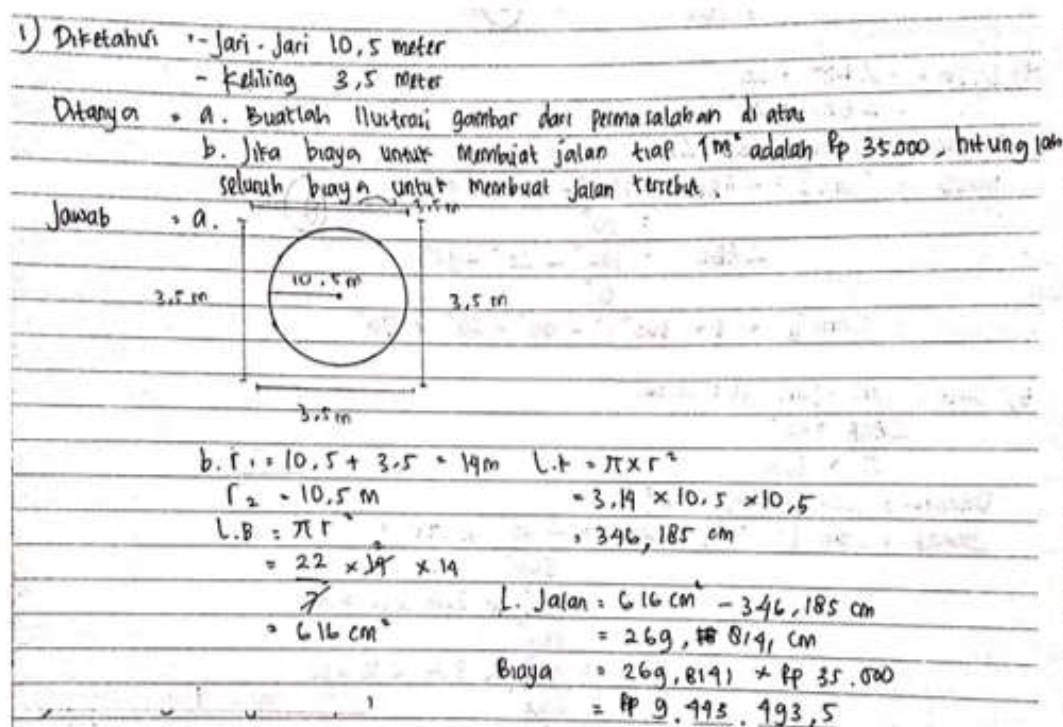 1) Diketahui :- Jari-Jari 10,5 meter
- Keliling 3,5 meter
Ditanya = a. Buatlah Ilustrasi gambar dari permasalahan di atas
b. Jika biaya untuk membuat jalan tiap 1m² adalah Rp 35.000, hitung lah
seluruh biaya untuk membuat jalan tersebut.
Jawab = a.
3,5 m
10,5 m
3,5 m
3,5 m
3,5 m
b. r₁ = 10,5 + 3,5 = 14m
r₂ = 10,5 m
L.B = π r²
= 22 × 14 × 14
7
2
= 616 cm²
L.k = π x r²
= 3,14 × 10,5 × 10,5
= 346,185 cm
L. Jalan = 616 cm² - 346,185 cm
= 269, 814, cm
Biaya = 269,8141 × Rp 35.000
= Rp 9.443.493,5